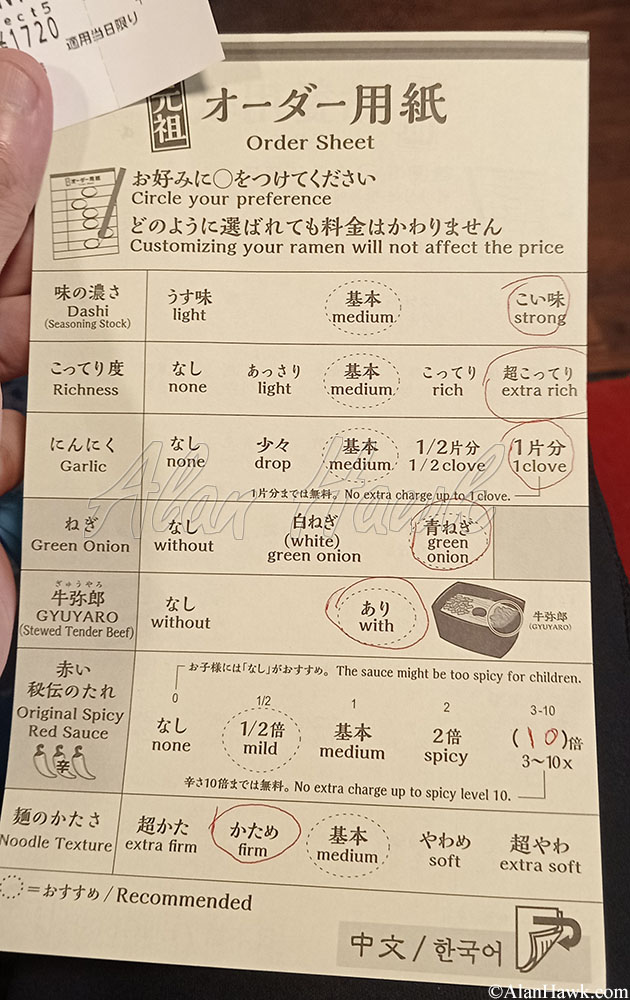 ect5
¥1720
適用当日限り
元祖
オーダー用紙
Order Sheet
オーダー用紙
お好みに○をつけてください
Circle your preference
どのように選ばれても料金はかわりません
Customizing your ramen will not affect the price
味の濃さ
Dashi
(Seasoning Stock)
うす味
light
基本
medium
こい味
strong
こってり度
Richness
なし
none
あっさり
light
基本
medium
こってり
rich
超こってり
extra rich
にんにく
Garlic
なし
none
少々
drop
基本
medium
1/2片分
1/2 clove
1片分
1 clove
1片分までは無料。No extra charge up to 1 clove.
ねぎ
Green Onion
なし
without
白ねぎ
(white)
green onion
青ねぎ
green
onion
ぎゅうやろ
牛弥郎
GYUYARO
(Stewed Tender Beef)
なし
without
あり
with
牛弥郎
(GYUYARO)
赤い
秘伝のたれ
Original Spicy
Red Sauce
辛
お子様には「なし」がおすすめ。 The sauce might be too spicy for children.
0
なし
none
1/2
1/2倍
mild
1
基本
medium
2
2倍
spicy
3-10
(10)倍
3〜10x
辛さ10倍までは無料。No extra charge up to spicy level 10.
麺のかたさ
Noodle Texture
超かた
extra firm
かため
firm
基本
medium
やわめ
soft
超やわ
extra soft
=おすすめ/Recommended
中文/한국어
Alan Hawk
©AlanHawk.com